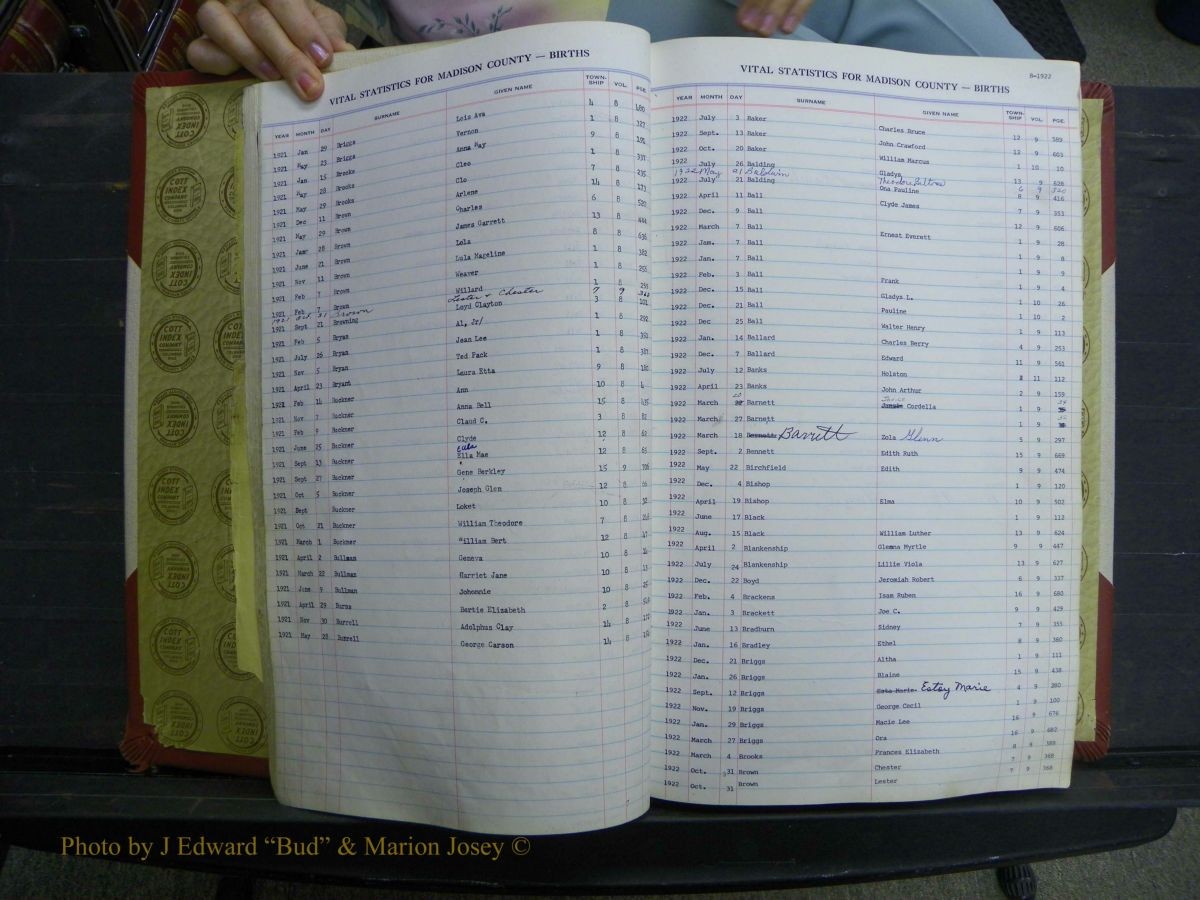 VITAL STATISTICS FOR MADISON COUNTY — BIRTHS
YEAR MONTH DAY SURNAME GIVEN NAME TOWN-SHIP VOL. PGE.
1921 Jan 29 Briggs Lois Ava 4 8 480
1921 May 23 Briggs Vernon 1 8 327
1921 Jan 15 Brooks Anna May 9 8 191
1921 May 28 Brooks Cleo 1 8 337
1921 May 29 Brooks Clo 7 8 235
1921 Dec 11 Brown Arlene 14 8 173
1921 May 29 Brown Charles 6 8 520
1921 Jan 28 Brown James Garrett 13 8 444
1921 June 21 Brown Lola 8 8 636
1921 Nov 11 Brown Lula Mageline 1 8 382
1921 Feb 7 Brown Weaver 1 8 255
1921 Feb 7 Brown Willard 1 8 255
1921 Oct 31 Brown Lester & Chester 7 9 368
1921 Sept 21 Browning Loyd Clayton 3 8 101
1921 Feb 5 Bryan Al, Jr/ 1 8 292
1921 July 26 Bryan Jean Lee 1 8 350
1921 Nov 5 Bryan Ted Pack 1 8 387
1921 April 23 Bryant Leura Etta 9 8 180
1921 Feb 14 Buckner Ann 10 8 4
1921 Nov 7 Buckner Anna Bell 15 8 635
1921 Feb 9 Buckner Claud C. 3 8 82
1921 June 25 Buckner Clyde 12 8 60
1921 Sept 13 Buckner Eula Ella Mae 12 8 65
1921 Sept 27 Buckner Gene Berkley 15 9 706
1921 Oct 5 Buckner Joseph Glen 12 8 66
1921 Sept Buckner Loket 10 8 32
1921 Oct 21 Buckner William Theodore 7 8
1921 March 1 Buckner William Bert 12 8 47
1921 April 2 Bullman Geneva 10 8
1921 March 22 Bullman Harriet Jane 10 8 13
1921 June 9 Bullman Johonnie 10 8
1921 April 29 Burns Bertie Elizabeth 2 8
1921 Nov 30 Burrell Adolphus Clay 14 8
1921 May 28 Burrell George Carson 14 8
VITAL STATISTICS FOR MADISON COUNTY — BIRTHS
B-1922
YEAR MONTH DAY SURNAME GIVEN NAME TOWN-SHIP VOL. PGE.
1922 July 3 Baker Charles Bruce 12 9 589
1922 Sept. 13 Baker John Crawford 12 9 603
1922 Oct. 20 Baker William Marcus 1 10 10
1922 July 26 Balding Gladys 13 9 628
1922 May 21 Baldwin Theodore 6 9 320
1922 July 21 Balding Ona Pauline 8 9 416
1922 April 11 Ball Clyde James 7 9 353
1922 Dec. 9 Ball 12 9 606
1922 March 7 Ball Ernest Everett 1 9 28
1922 Jan. 7 Ball 1 9 8
1922 Jan. 7 Ball 1 9 9
1922 Feb. 3 Ball Frank 1 9 4
1922 Dec. 15 Ball Gladys L. 1 10 26
1922 Dec. 21 Ball Pauline 1 10 2
1922 Dec 25 Ball Walter Henry 1 9 113
1922 Jan. 14 Ballard Charles Berry 4 9 253
1922 Dec. 7 Ballard Edward 11 9 561
1922 July 12 Banks Holston 2 11 112
1922 April 23 Banks John Arthur 2 9 159
1922 March 20 Barnett Cordella 1 9
1922 March 27 Barnett 1 9
1922 March 18 Barrett Zola Glenn 5 9 297
1922 Sept. 2 Bennett Edith Ruth 15 9 669
1922 May 22 Birchfield Edith 9 9 474
1922 Dec. 4 Bishop 1 9 120
1922 April 19 Bishop Elma 10 9 502
1922 June 17 Black 1 9 112
1922 Aug. 15 Black William Luther 13 9 624
1922 April 2 Blankenship Glemna Myrtle 9 9 447
1922 July 24 Blankenship Lillie Viola 13 9 627
1922 Dec. 22 Boyd Jeromiah Robert 6 9 337
1922 Feb. 4 Brackens Isam Ruben 16 9 680
1922 Jan. 3 Brackett Joe C. 9 9 429
1922 June 13 Bradburn Sidney 7 9 355
1922 Jan. 16 Bradley Ethel 8 9 360
1922 Dec. 21 Briggs Altha 1 9 111
1922 Jan. 26 Briggs Blaine 15 9 438
1922 Sept. 12 Briggs Esta Marie Estoy Marie 4 9 280
1922 Nov. 19 Briggs George Cecil 1 9 100
1922 Jan. 29 Briggs Macie Lee 16 9 676
1922 March 27 Briggs Ora 16 9 682
1922 March 4 Brooks Frances Elizabeth 8 8 388
1922 Oct. 31 Brown Chester 7 9 368
1922 Oct. 31 Brown Lester 7 9 368
COTT INDEX COMPANY
Photo by J Edward “Bud” & Marion Josey ©